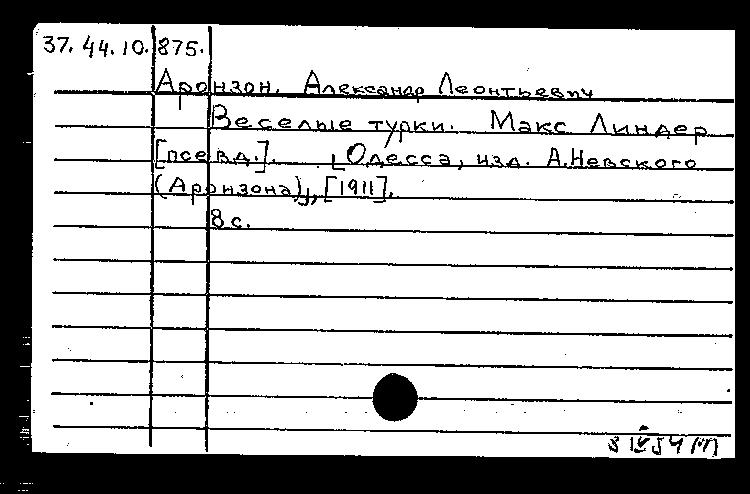 37.44.10.875.
Аронзон, Александр Леонтьевич
Веселые турки. Макс Линдер
[псевд.]. [Одесса, изд. А.Невского
(Аронзона)], [1911].
8 с.